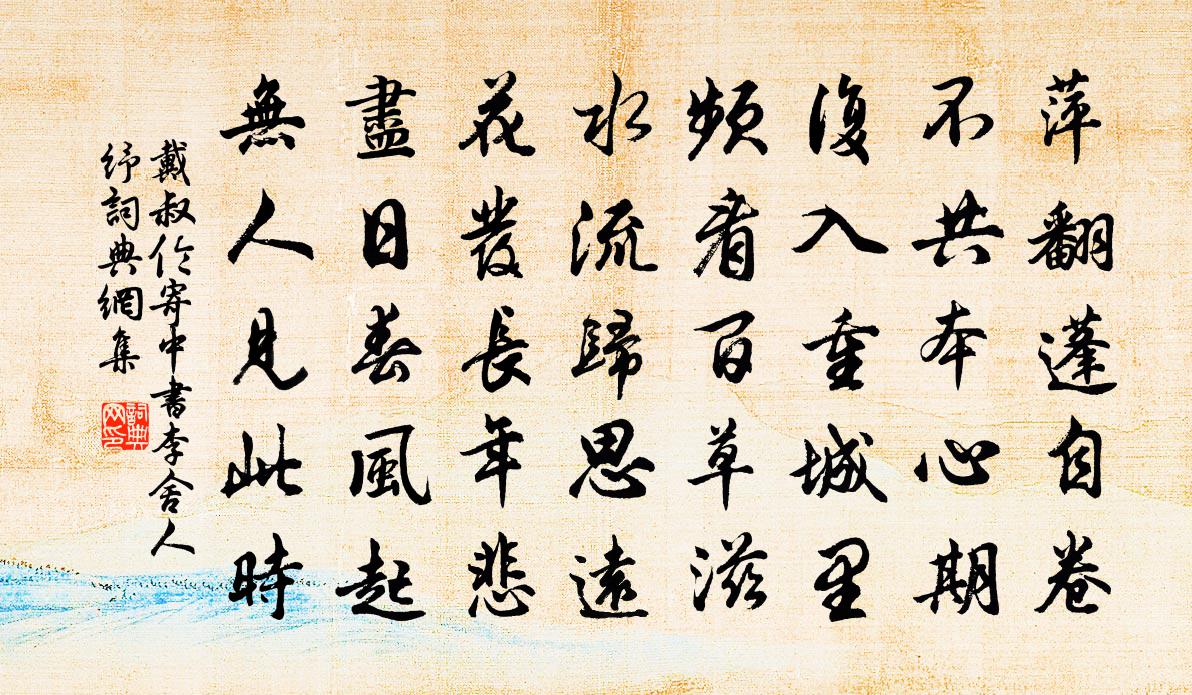 萍翻蓬自卷
不共本心期
復入重城里
頻看百草滋
水流歸思遠
花發長年悲
盡日春風起
無人見此時
戴叔伦寄中書李舍人
纾詞典網集
詞典
网印